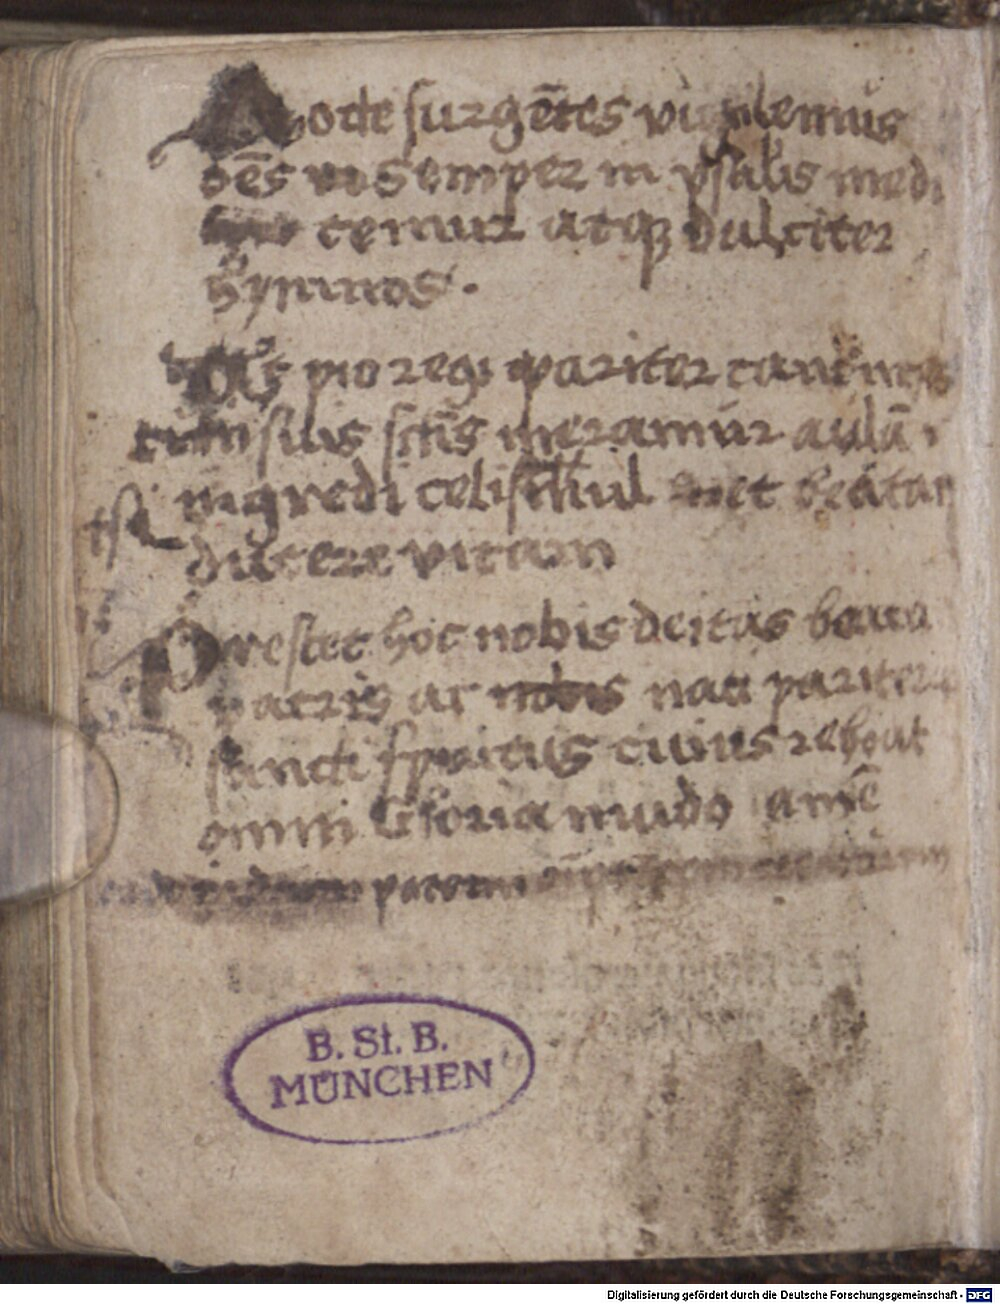 Nocte surgētes vigilemus
oēs vt Semper in psalis medi
temur atqꝫ dulciter
hymnos.
Ut pio regi pariter canentes
cum suis sctīs meramur aulā
ingredi celi simul et beatam
ducere vitam
Prestet hoc nobis deitas beata
patris ac nobis nati pariterqꝫ
sancti spiritus cuius reboat
omni Gloria mūdo amē
pacem
B. St. B.
MÜNCHEN
Digitalisierung gefördert durch die Deutsche Forschungsgemeinschaft - DFG